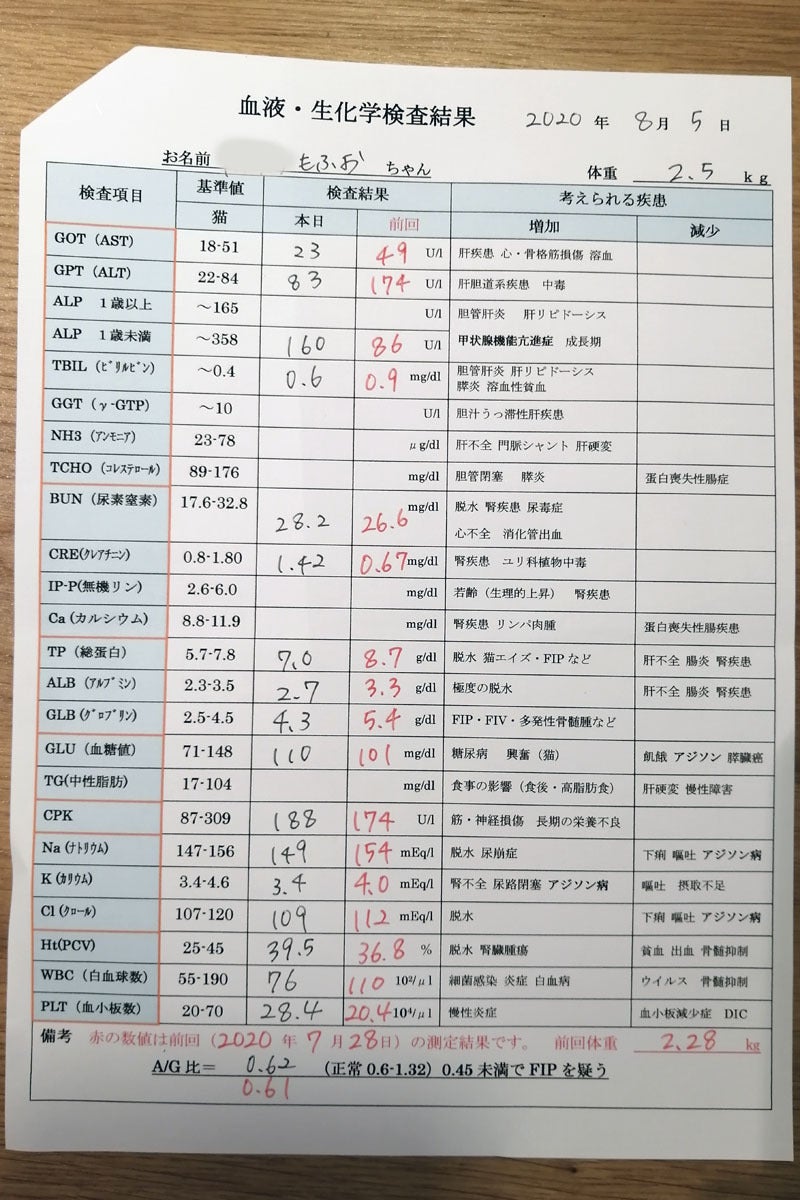 血液・生化学検査結果 2020 年 8 月 5 日
お名前 もふお ちゃん 体重 2.5 kg
検査項目 基準値 検査結果 考えられる疾患
猫 本日 前回 増加 減少
GOT（AST） 18-51 23 49 U/l 肝疾患 心・骨格筋損傷 溶血
GPT（ALT） 22-84 83 174 U/l 肝胆道系疾患 中毒
ALP 1歳以上 ～165 U/l 胆管肝炎 肝リピドーシス
ALP 1歳未満 ～358 160 86 U/l 甲状腺機能亢進症 成長期
TBIL（ﾋﾞﾘﾙﾋﾞﾝ） ～0.4 0.6 0.9 mg/dl 胆管肝炎 肝リピドーシス
膵炎 溶血性貧血
GGT（γ-GTP） ～10 U/l 胆汁うっ滞性肝疾患
NH3（ｱﾝﾓﾆｱ） 23-78 μg/dl 肝不全 門脈シャント 肝硬変
TCHO（ｺﾚｽﾃﾛｰﾙ） 89-176 mg/dl 胆管閉塞 膵炎 蛋白喪失性腸症
BUN（尿素窒素） 17.6-32.8 28.2 26.6 mg/dl 脱水 腎疾患 尿毒症
心不全 消化管出血
CRE(ｸﾚｱﾁﾆﾝ) 0.8-1.80 1.42 0.67 mg/dl 腎疾患 ユリ科植物中毒
IP-P(無機リン) 2.6-6.0 mg/dl 若齢（生理的上昇） 腎疾患
Ca(カルシウム) 8.8-11.9 mg/dl 腎疾患 リンパ肉腫 蛋白喪失性腸疾患
TP（総蛋白） 5.7-7.8 7.0 8.7 g/dl 脱水 猫エイズ・FIPなど 肝不全 腸炎 腎疾患
ALB（ｱﾙﾌﾞﾐﾝ） 2.3-3.5 2.7 3.3 g/dl 極度の脱水 肝不全 腸炎 腎疾患
GLB(ｸﾞﾛﾌﾞﾘﾝ) 2.5-4.5 4.3 5.4 g/dl FIP・FIV・多発性骨髄腫など
GLU（血糖値） 71-148 110 101 mg/dl 糖尿病 興奮（猫） 飢餓 アジソン 膵臓癌
TG(中性脂肪) 17-104 mg/dl 食事の影響（食後・高脂肪食） 肝硬変 慢性障害
CPK 87-309 188 174 U/l 筋・神経損傷 長期の栄養不良
Na(ﾅﾄﾘｳﾑ) 147-156 149 154 mEq/l 脱水 尿崩症 下痢 嘔吐 アジソン病
K(ｶﾘｳﾑ) 3.4-4.6 3.4 4.0 mEq/l 腎不全 尿路閉塞 アジソン病 嘔吐 摂取不足
Cl(ｸﾛｰﾙ) 107-120 109 112 mEq/l 脱水 下痢 嘔吐 アジソン病
Ht(PCV) 25-45 39.5 36.8 % 脱水 腎臓腫瘍 貧血 出血 骨髄抑制
WBC（白血球数） 55-190 76 110 10²/μl 細菌感染 炎症 白血病 ウイルス 骨髄抑制
PLT（血小板数） 20-70 28.4 20.4 10⁴/μl 慢性炎症 血小板減少症 DIC
備考 赤の数値は前回（2020 年 7 月 28日）の測定結果です。 前回体重 2.28 kg
A/G比＝ 0.62 （正常0.6-1.32）0.45未満でFIPを疑う
0.61